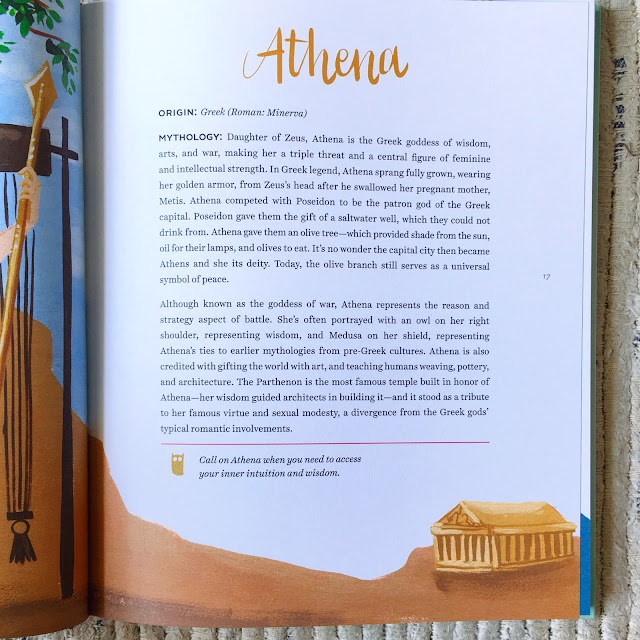 Athena
ORIGIN: Greek (Roman: Minerva)
MYTHOLOGY: Daughter of Zeus, Athena is the Greek goddess of wisdom,
arts, and war, making her a triple threat and a central figure of feminine
and intellectual strength. In Greek legend, Athena sprang fully grown, wearing
her golden armor, from Zeus's head after he swallowed her pregnant mother,
Metis. Athena competed with Poseidon to be the patron god of the Greek
capital. Poseidon gave them the gift of a saltwater well, which they could not
drink from. Athena gave them an olive tree—which provided shade from the sun,
oil for their lamps, and olives to eat. It's no wonder the capital city then became
Athens and she its deity. Today, the olive branch still serves as a universal
symbol of peace.
17
Although known as the goddess of war, Athena represents the reason and
strategy aspect of battle. She's often portrayed with an owl on her right
shoulder, representing wisdom, and Medusa on her shield, representing
Athena's ties to earlier mythologies from pre-Greek cultures. Athena is also
credited with gifting the world with art, and teaching humans weaving, pottery,
and architecture. The Parthenon is the most famous temple built in honor of
Athena—her wisdom guided architects in building it—and it stood as a tribute
to her famous virtue and sexual modesty, a divergence from the Greek gods'
typical romantic involvements.
Call on Athena when you need to access
your inner intuition and wisdom.